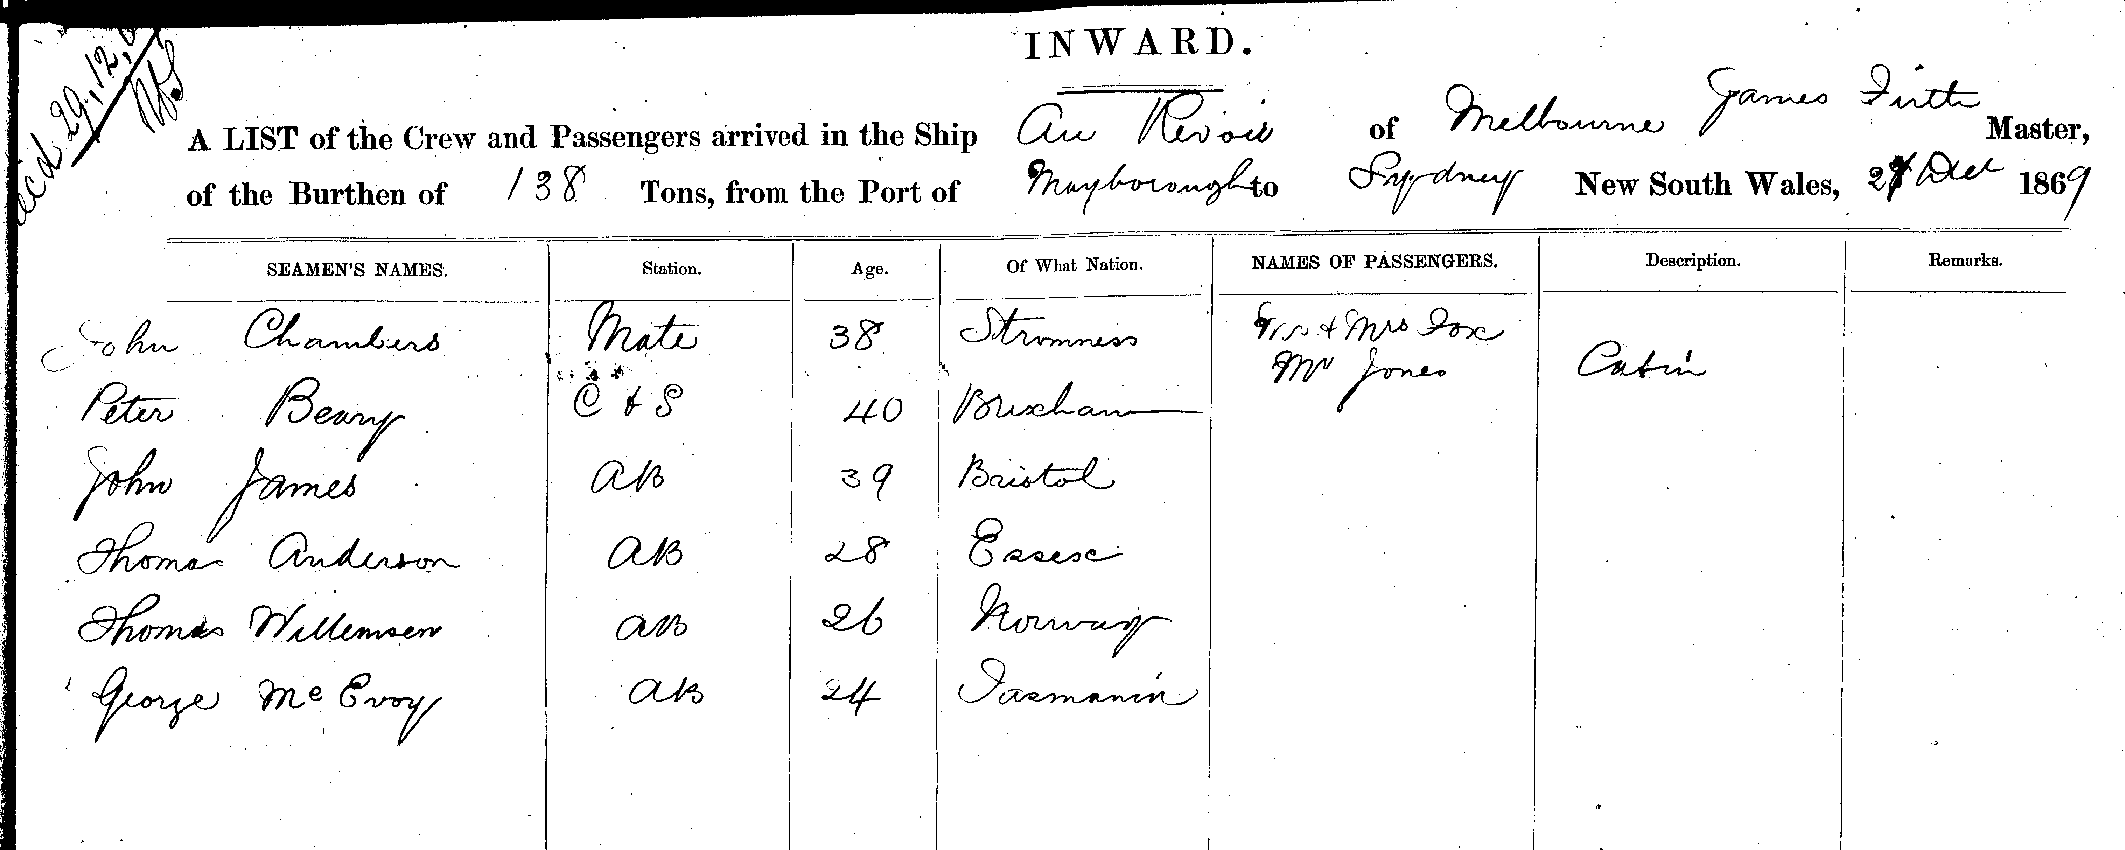 INWARD.
A LIST of the Crew and Passengers arrived in the Ship Au Revoir of Melbourne James Firth Master,
of the Burthen of 138 Tons, from the Port of Mayborough to Sydney New South Wales, Dec 1869
SEAMEN'S NAMES. Station. Age. Of What Nation. NAMES OF PASSENGERS. Description. Remarks.
John Chambers Mate 38 Stromness Mr & Mrs Fox
Mr Jones Cabin
Peter Beary C & S 40 Brixham
John James AB 39 Bristol
Thomas Anderson AB 28 Essex
Thomas Willemsen AB 26 Norway
George McEvoy AB 24 Tasmania